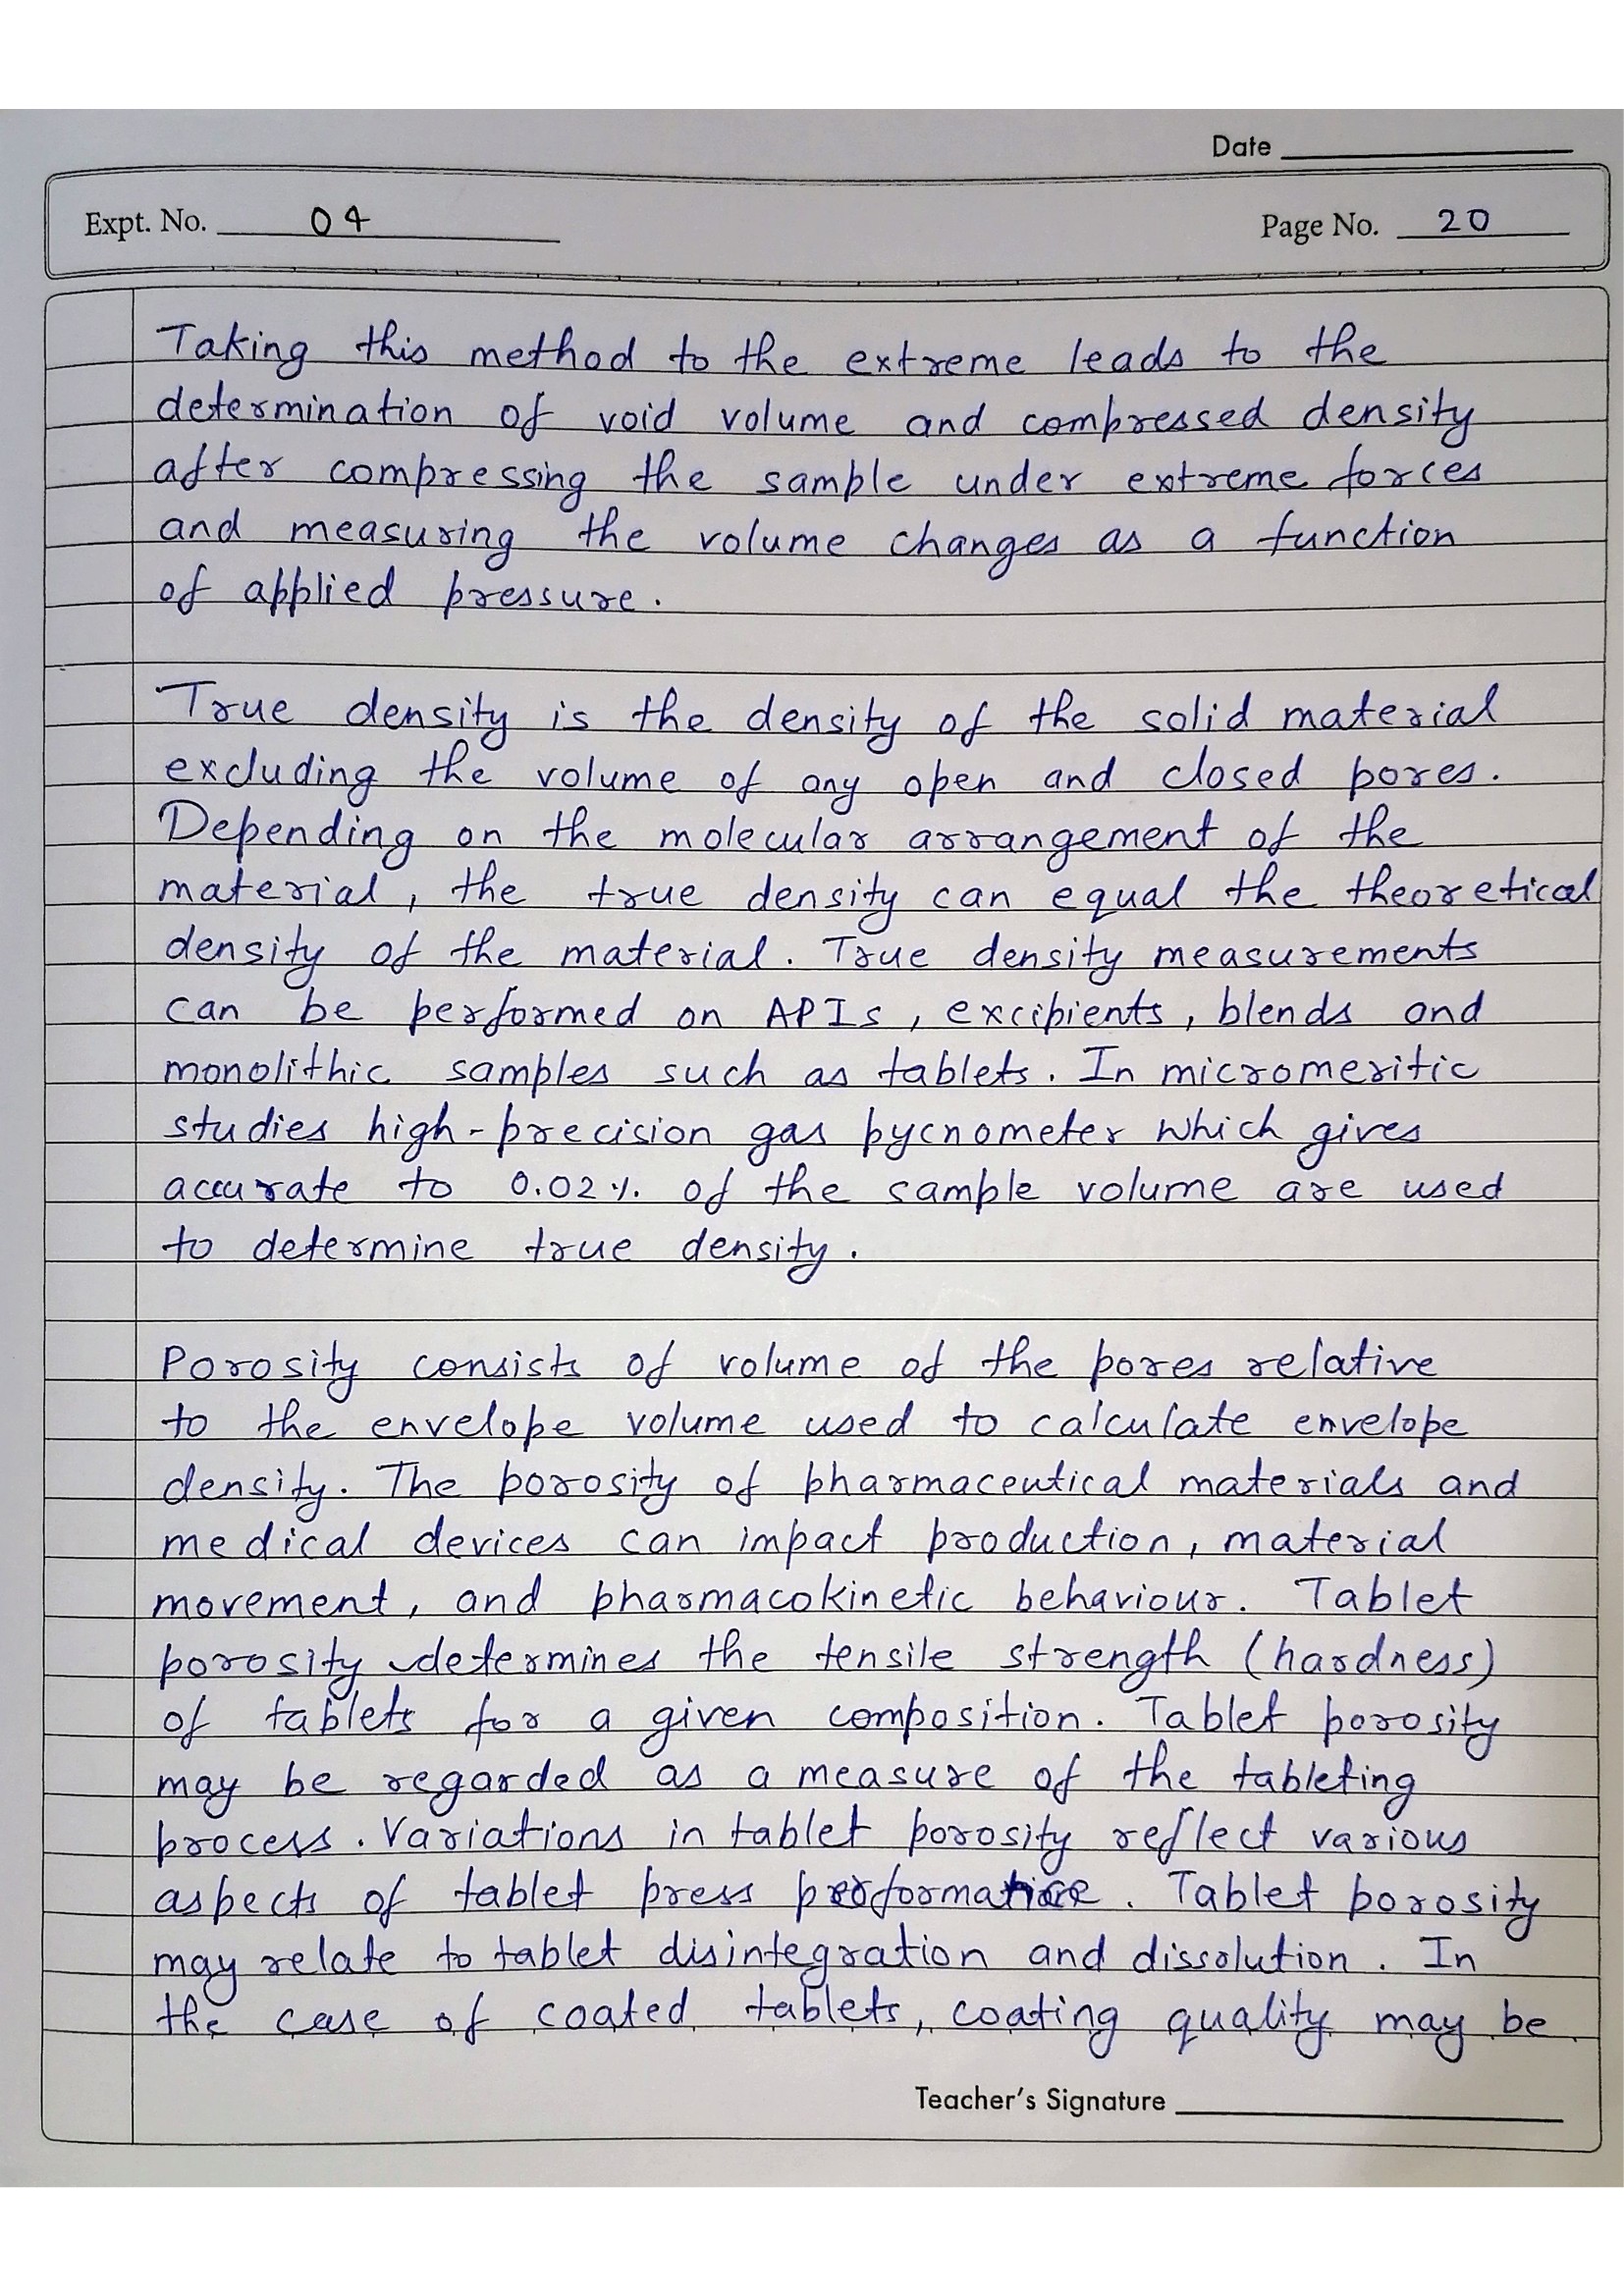 Date
Expt. No. 04
Page No. 20
Taking this method to the extreme leads to the
determination of void volume and compressed density
after compressing the sample under extreme forces
and measuring the volume changes as a function
of applied pressure.
True density is the density of the solid material
excluding the volume of any open and closed pores.
Depending on the molecular arrangement of the
material, the true density can equal the theoretical
density of the material. True density measurements
can be performed on APIs, excipients, blends and
monolithic samples such as tablets. In micromeritic
studies high-precision gas pycnometer which gives
accurate to 0.02%. of the sample volume are used
to determine true density.
Porosity consists of volume of the pores relative
to the envelope volume used to calculate envelope
density. The porosity of pharmaceutical materials and
medical devices can impact production, material
movement, and pharmacokinetic behaviour. Tablet
porosity determines the tensile strength (hardness)
of tablets for a given composition. Tablet porosity
may be regarded as a measure of the tableting
process. Variations in tablet porosity reflect various
aspects of tablet press performance. Tablet porosity
may relate to tablet disintegration and dissolution. In
the case of coated tablets, coating quality may be
Teacher's Signature